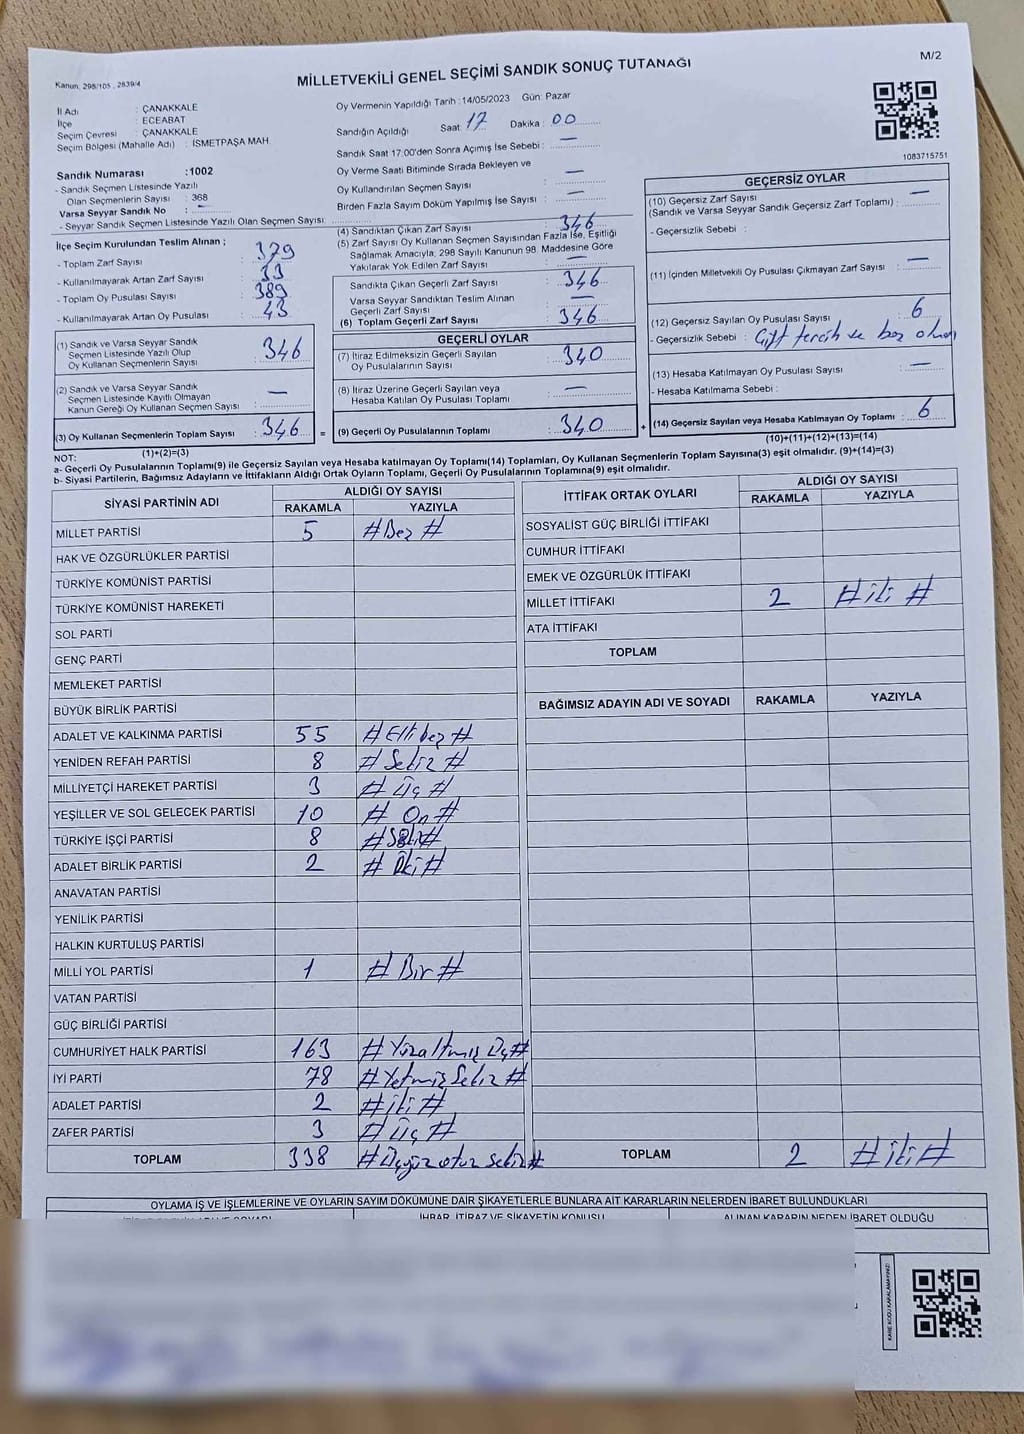 Kanun, 298/105 , 2839/4
MİLLETVEKİLİ GENEL SEÇİMİ SANDIK SONUÇ TUTANAĞI
M/2
İl Adı : ÇANAKKALE
İlçe : ECEABAT
Seçim Çevresi : ÇANAKKALE
Seçim Bölgesi (Mahalle Adı) : İSMETPAŞA MAH
Sandık Numarası :1002
- Sandık Seçmen Listesinde Yazılı
Olan Seçmenlerin Sayısı : 368
Varsa Seyyar Sandık No : –
- Seyyar Sandık Seçmen Listesinde Yazılı Olan Seçmen Sayısı:
İlçe Seçim Kurulundan Teslim Alınan ;
- Toplam Zarf Sayısı : 379
- Kullanılmayarak Artan Zarf Sayısı : 33
- Toplam Oy Pusulası Sayısı : 389
- Kullanılmayarak Artan Oy Pusulası : 43
(1) Sandık ve Varsa Seyyar Sandık
Seçmen Listesinde Yazılı Olup
Oy Kullanan Seçmenlerin Sayısı : 346
(2) Sandık ve Varsa Seyyar Sandık
Seçmen Listesinde Kayıtlı Olmayan
Kanun Gereği Oy Kullanan Seçmen Sayısı : —
(3) Oy Kullanan Seçmenlerin Toplam Sayısı : 346 =
(1)+(2)=(3)
Oy Vermenin Yapıldığı Tarih :14/05/2023 Gün: Pazar
Sandığın Açıldığı Saat: 17 Dakika : 00
Sandık Saat 17:00'den Sonra Açımış İse Sebebi : —
Oy Verme Saati Bitiminde Sırada Bekleyen ve
Oy Kullandırılan Seçmen Sayısı : —
Birden Fazla Sayım Döküm Yapılmış İse Sayısı : —
(4) Sandıktan Çıkan Zarf Sayısı : 346
(5) Zarf Sayısı Oy Kullanan Seçmen Sayısından Fazla İse, Eşitliği
Sağlamak Amacıyla, 298 Sayılı Kanunun 98. Maddesine Göre
Yakılarak Yok Edilen Zarf Sayısı : —
Sandıkta Çıkan Geçerli Zarf Sayısı : 346
Varsa Seyyar Sandıktan Teslim Alınan
Geçerli Zarf Sayısı : —
(6) Toplam Geçerli Zarf Sayısı : 346
GEÇERLİ OYLAR
(7) İtiraz Edilmeksizin Geçerli Sayılan
Oy Pusulalarının Sayısı : 340
(8) İtiraz Üzerine Geçerli Sayılan veya
Hesaba Katılan Oy Pusulası Toplamı : —
(9) Geçerli Oy Pusulalarının Toplamı : 340 +
1083715751
GEÇERSİZ OYLAR
(10) Geçersiz Zarf Sayısı
(Sandık ve Varsa Seyyar Sandık Geçersiz Zarf Toplamı) : —
- Geçersizlik Sebebi :
(11) İçinden Milletvekili Oy Pusulası Çıkmayan Zarf Sayısı : —
(12) Geçersiz Sayılan Oy Pusulası Sayısı : 6
- Geçersizlik Sebebi : Çift tercih ve boş olması
(13) Hesaba Katılmayan Oy Pusulası Sayısı : —
- Hesaba Katılmama Sebebi :
(14) Geçersiz Sayılan veya Hesaba Katılmayan Oy Toplamı : 6
(10)+(11)+(12)+(13)=(14)
NOT:
a- Geçerli Oy Pusulalarının Toplamı(9) ile Geçersiz Sayılan veya Hesaba katılmayan Oy Toplamı(14) Toplamları, Oy Kullanan Seçmenlerin Toplam Sayısına(3) eşit olmalıdır. (9)+(14)=(3)
b- Siyasi Partilerin, Bağımsız Adayların ve İttifakların Aldığı Ortak Oyların Toplamı, Geçerli Oy Pusulalarının Toplamına(9) eşit olmalıdır.
SİYASİ PARTİNİN ADI ALDIĞI OY SAYISI
RAKAMLA YAZIYLA
MİLLET PARTİSİ 5 #Beş#
HAK VE ÖZGÜRLÜKLER PARTİSİ
TÜRKİYE KOMÜNİST PARTİSİ
TÜRKİYE KOMÜNİST HAREKETİ
SOL PARTİ
GENÇ PARTİ
MEMLEKET PARTİSİ
BÜYÜK BİRLİK PARTİSİ
ADALET VE KALKINMA PARTİSİ 55 #Elli beş#
YENİDEN REFAH PARTİSİ 8 #Sekiz#
MİLLİYETÇİ HAREKET PARTİSİ 3 #Üç#
YEŞİLLER VE SOL GELECEK PARTİSİ 10 #On#
TÜRKİYE İŞÇİ PARTİSİ 8 #Sekiz#
ADALET BİRLİK PARTİSİ 2 #İki#
ANAVATAN PARTİSİ
YENİLİK PARTİSİ
HALKIN KURTULUŞ PARTİSİ
MİLLİ YOL PARTİSİ 1 #Bir#
VATAN PARTİSİ
GÜÇ BİRLİĞİ PARTİSİ
CUMHURİYET HALK PARTİSİ 163 #Yüzaltmış Üç#
İYİ PARTİ 78 #Yetmiş Sekiz#
ADALET PARTİSİ 2 #İki#
ZAFER PARTİSİ 3 #Üç#
TOPLAM 338 #Üçyüz otuz sekiz#
İTTİFAK ORTAK OYLARI ALDIĞI OY SAYISI
RAKAMLA YAZIYLA
SOSYALİST GÜÇ BİRLİĞİ İTTİFAKI
CUMHUR İTTİFAKI
EMEK VE ÖZGÜRLÜK İTTİFAKI
MİLLET İTTİFAKI 2 #iki#
ATA İTTİFAKI
TOPLAM
BAĞIMSIZ ADAYIN ADI VE SOYADI RAKAMLA YAZIYLA
TOPLAM 2 #iki#
OYLAMA İŞ VE İŞLEMLERİNE VE OYLARIN SAYIM DÖKÜMÜNE DAİR ŞİKAYETLERLE BUNLARA AİT KARARLARIN NELERDEN İBARET BULUNDUKLARI
İHBAR, İTİRAZ VE ŞİKAYETİN KONUSU ALINAN KARARIN NEDEN İBARET OLDUĞU
KARE KODU KARALAMAYINIZ!